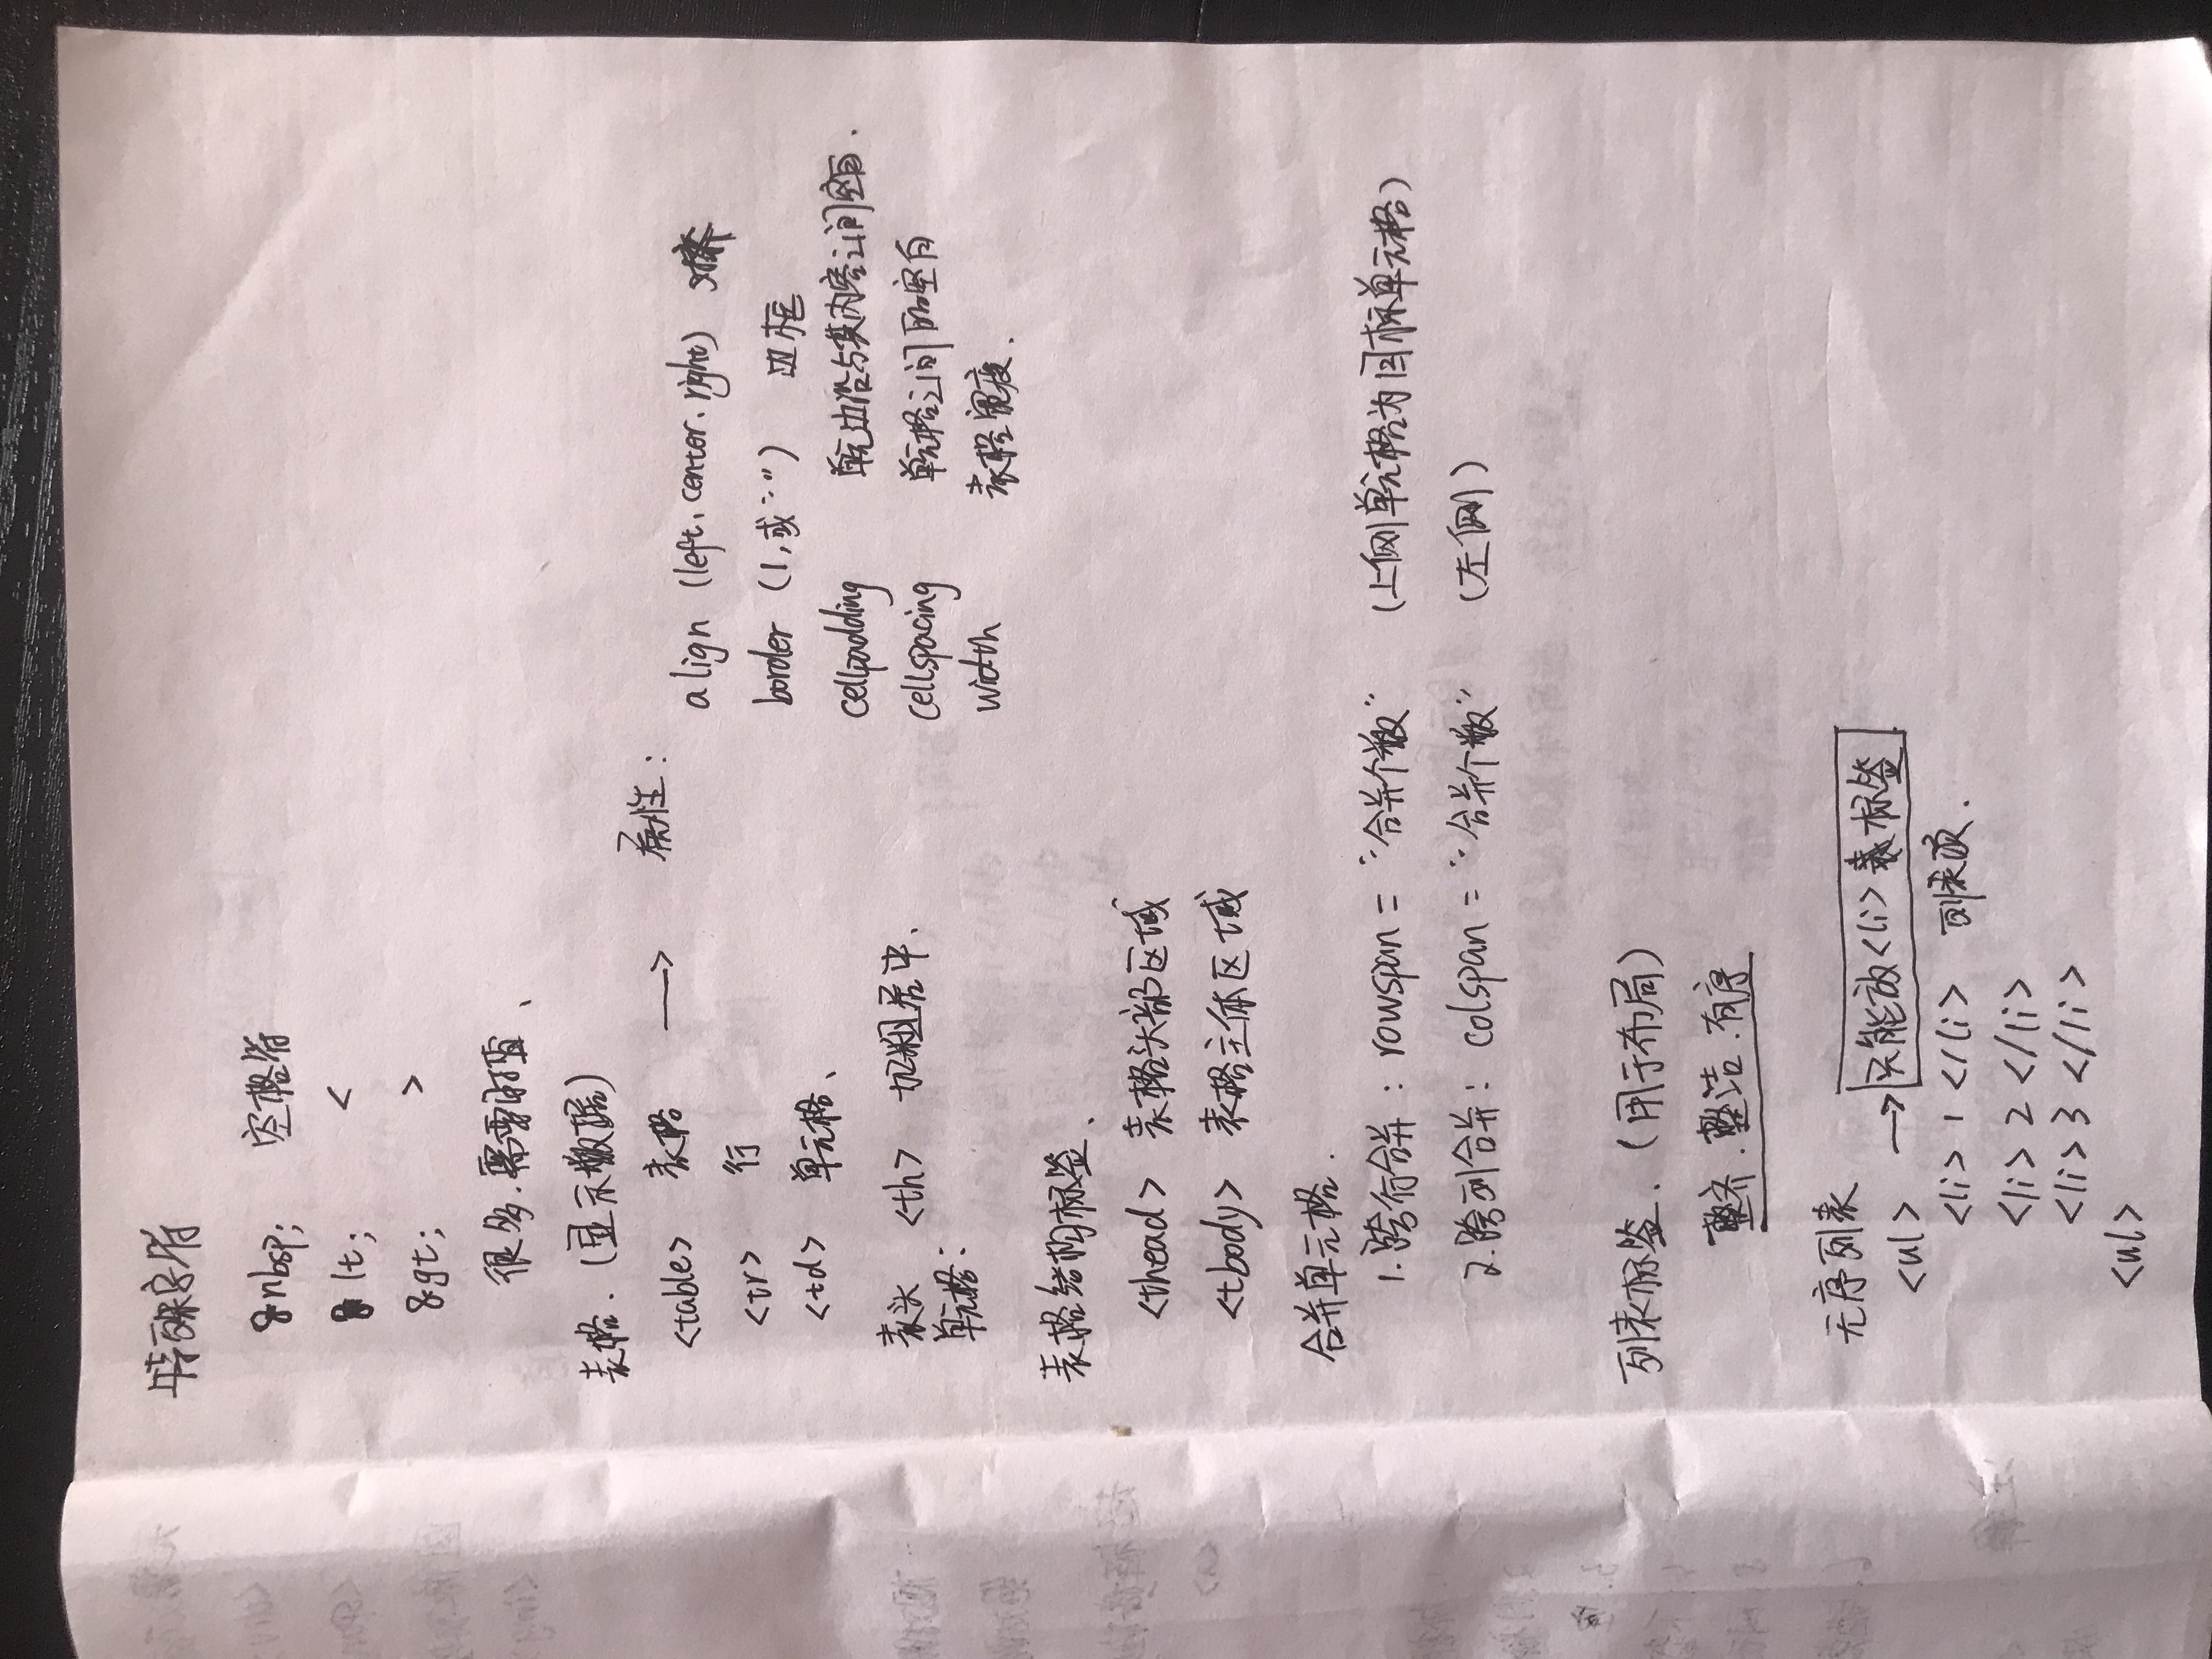 特殊字符
&nbsp; 空格符
&lt; <
&gt; >
很多.需要时查、
表格.(显示数据)
<table> 表格 → 属性:
align (left、center、right) 对齐
<tr> 行
border (1,或"") 边框
<td> 单元格、
cellpadding 单元边沿与其内容之间空白.
表头 <th> 加粗居中、
单元格:
cellspacing 单元格之间的空白
width 表格宽度.
表格结构标签、
<thead> 表格头部区域
<tbody> 表格主体区域
合并单元格.
1.跨行合并: rowspan = "合并个数" (上侧单元格为目标单元格)
2.跨列合并: colspan = "合并个数" (左侧)
列表标签.(用于布局)
整齐.整洁.有序
无序列表
<ul> → 只能放<li>标签
<li> 1 </li> 列表项.
<li> 2 </li>
<li> 3 </li>
<ul>